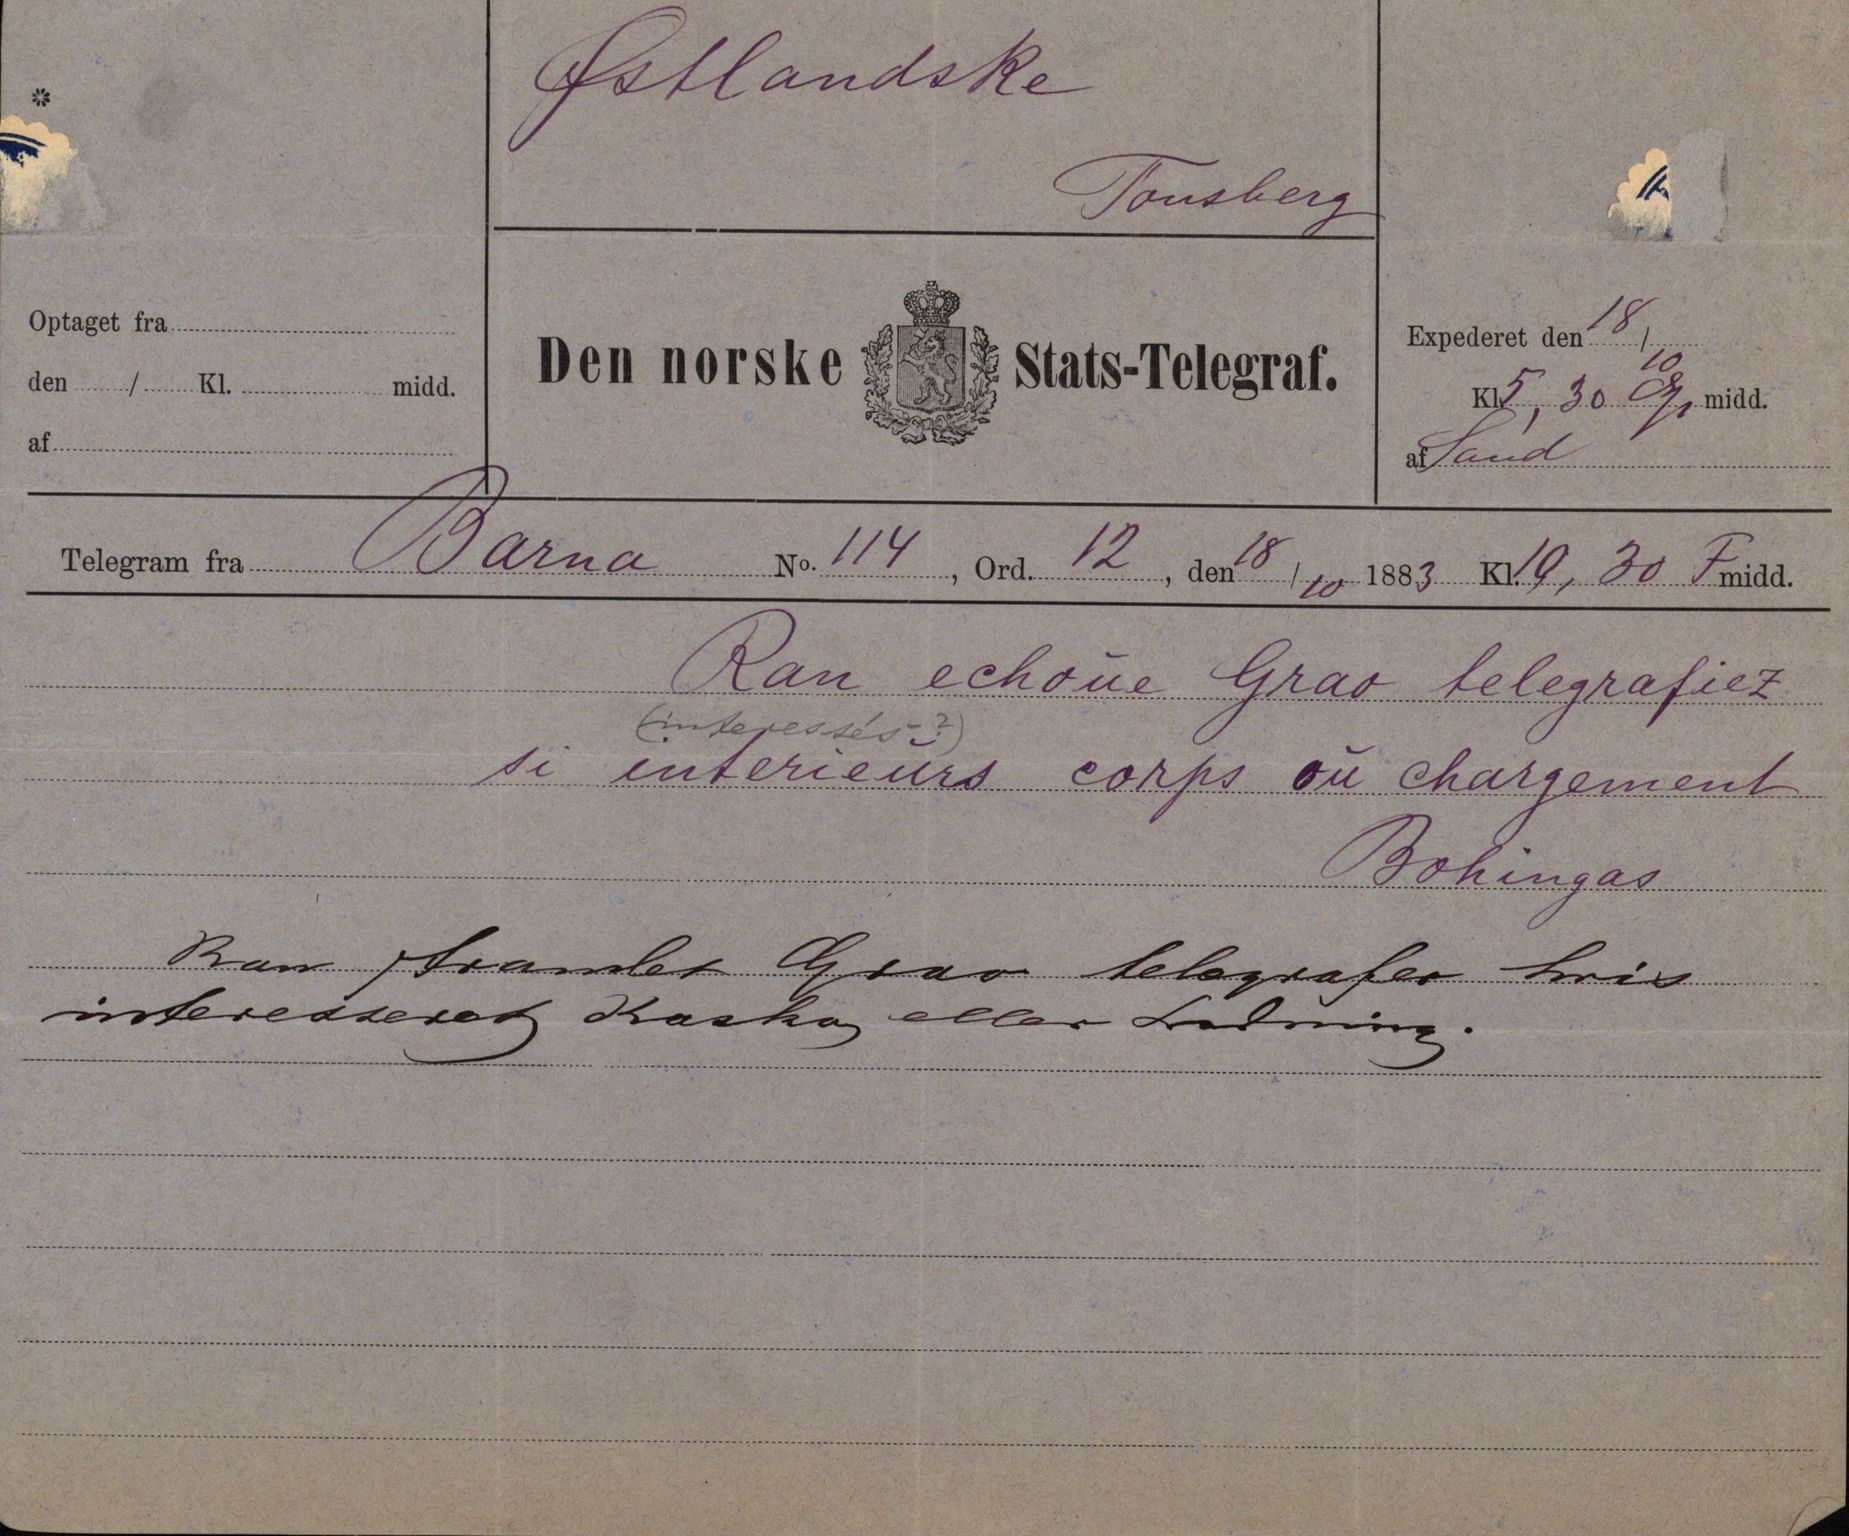 Østlandske
Tonsberg
*
Optaget fra
den / Kl. midd.
af
Den norske Stats-Telegraf.
Expederet den 18/10
Kl. 5,30 midd.
af Sand
Telegram fra Barna No. 114, Ord. 12, den 18/10 1883 Kl. 10,30 F midd.
Ran echoŭe Grao telegrafiez
(interessés-?)
si interieŭrs corps oŭ chargement
Bohingas
Ran strandet Grao telegrafer hvis
interesseret Kasko eller Ladning.